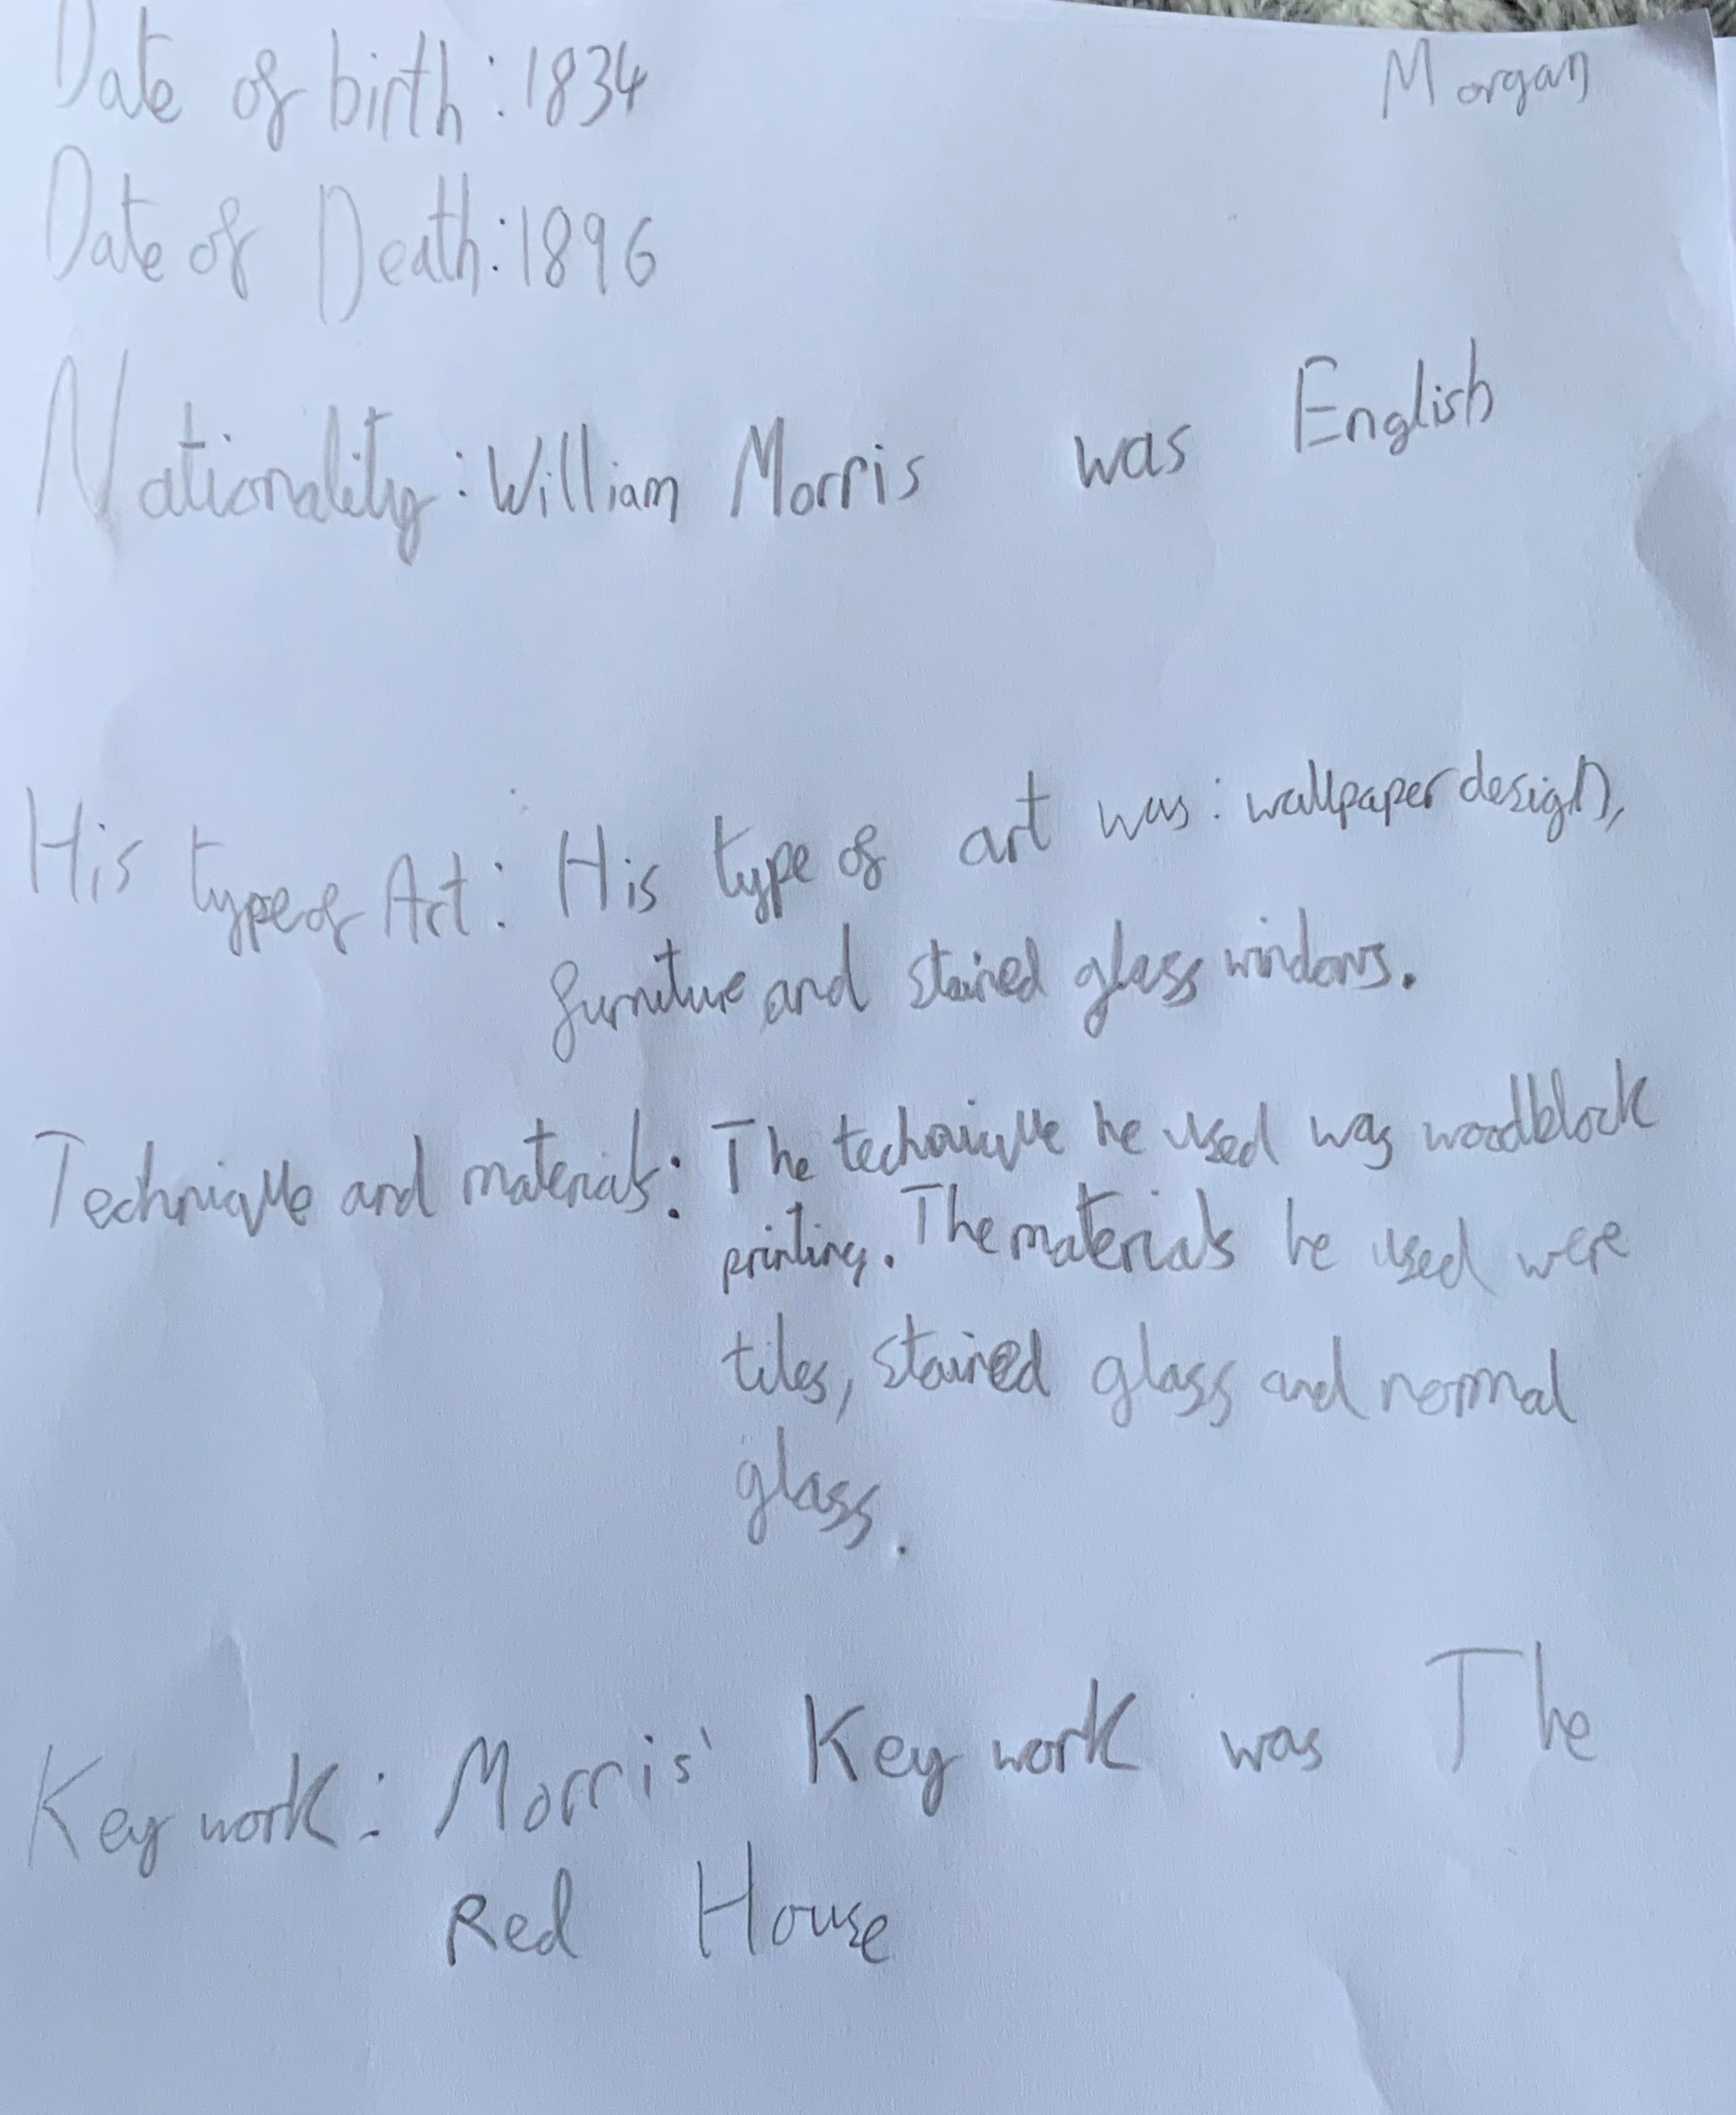 Date of birth: 1834
Morgan
Date of Death: 1896
Nationality: William Morris was English
His type of Art: His type of art was: wallpaper design,
furniture and stained glass windows.
Technique and materials: The technique he used was woodblock
printing. The materials he used were
tiles, stained glass and normal
glass.
Key work: Morris' Key work was The
Red House